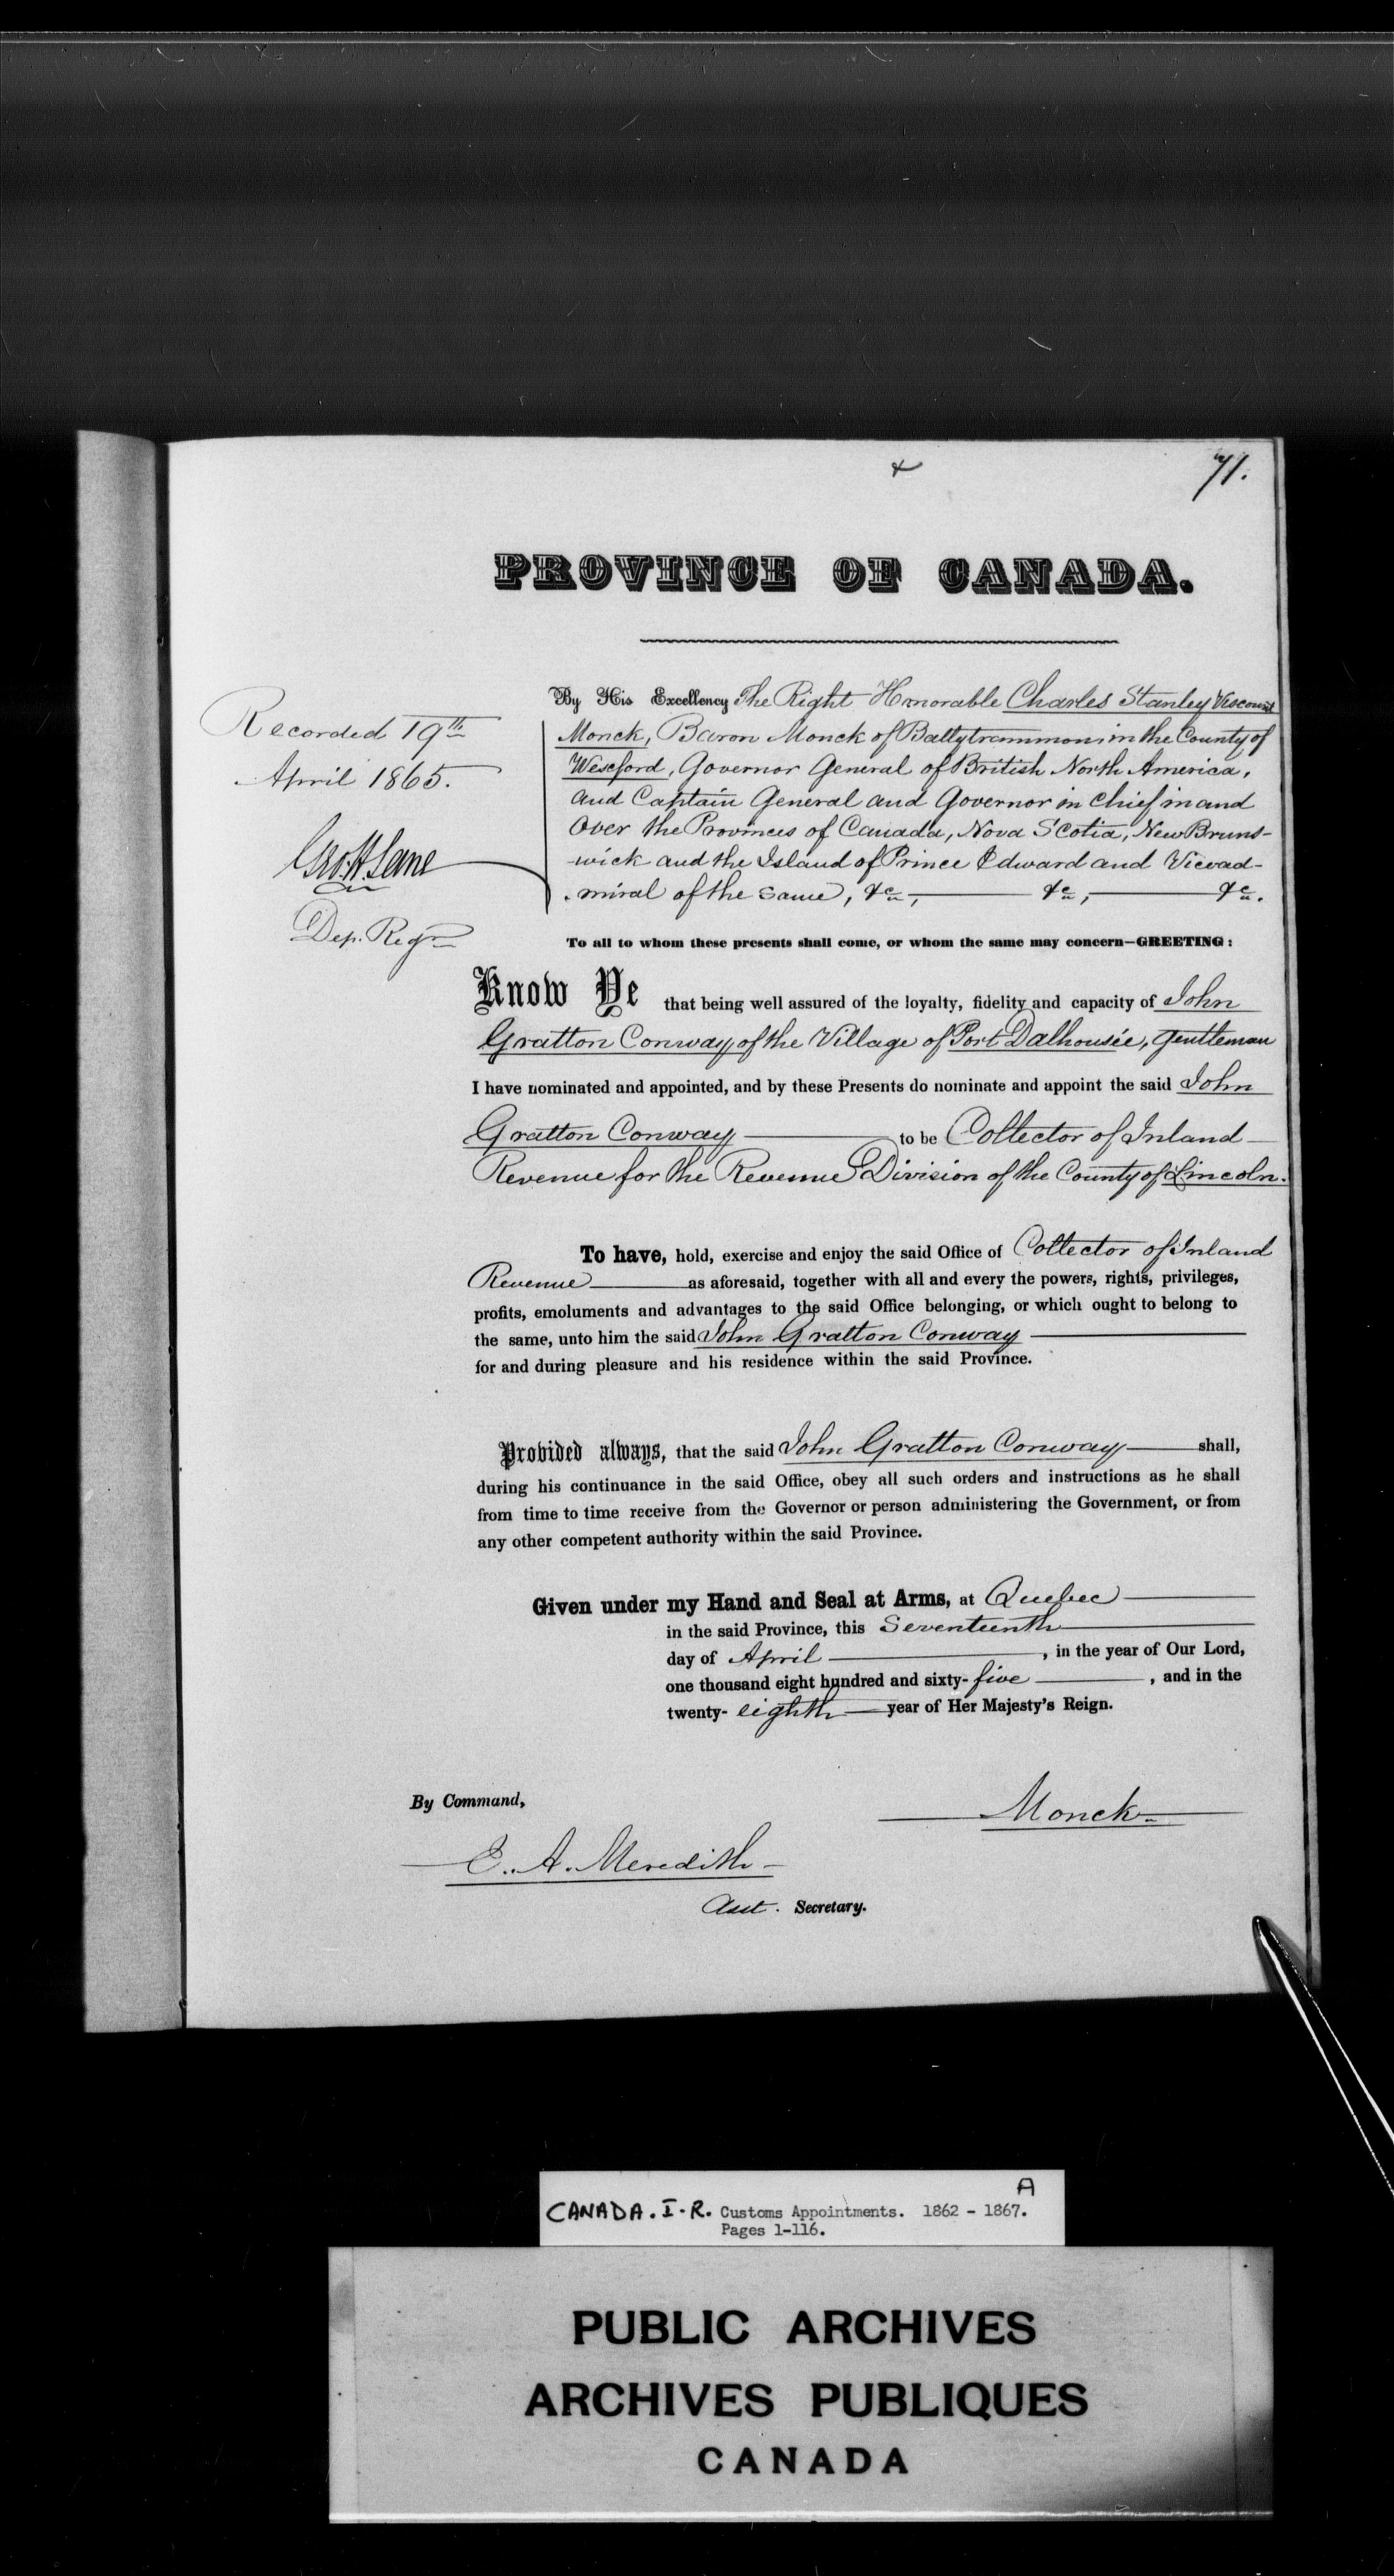 71.
PROVINCE OF CANADA.
Recorded 19th
April 1865.
Geo. H. Lane
Dep. Regr
By His Excellency The Right Honorable Charles Stanley Viscount
Monck, Baron Monck of Ballytrammon, in the County of
Wexford, Governor General of British North America,
and Captain General and Governor in Chief in and
Over the Provinces of Canada, Nova Scotia, New Bruns-
-wick and the Island of Prince Edward and Vicead-
-miral of the Same, &c, &c, &c.
To all to whom these presents shall come, or whom the same may concern—GREETING:
Know Ye that being well assured of the loyalty, fidelity and capacity of John
Gratton Conway of the Village of Port Dalhousie, Gentleman
I have nominated and appointed, and by these Presents do nominate and appoint the said John
Gratton Conway to be Collector of Inland
Revenue for the Revenue Division of the County of Lincoln.
To have, hold, exercise and enjoy the said Office of Collector of Inland
Revenue as aforesaid, together with all and every the powers, rights, privileges,
profits, emoluments and advantages to the said Office belonging, or which ought to belong to
the same, unto him the said John Gratton Conway
for and during pleasure and his residence within the said Province.
Provided always, that the said John Gratton Conway shall,
during his continuance in the said Office, obey all such orders and instructions as he shall
from time to time receive from the Governor or person administering the Government, or from
any other competent authority within the said Province.
Given under my Hand and Seal at Arms, at Quebec
in the said Province, this Seventeenth
day of April, in the year of Our Lord,
one thousand eight hundred and sixty-five, and in the
twenty-eighth year of Her Majesty's Reign.
By Command,
Monck
E. A. Meredith
Asst. Secretary.
A
CANADA. I-R. Customs Appointments. 1862 - 1867.
Pages 1-116.
PUBLIC ARCHIVES
ARCHIVES PUBLIQUES
CANADA